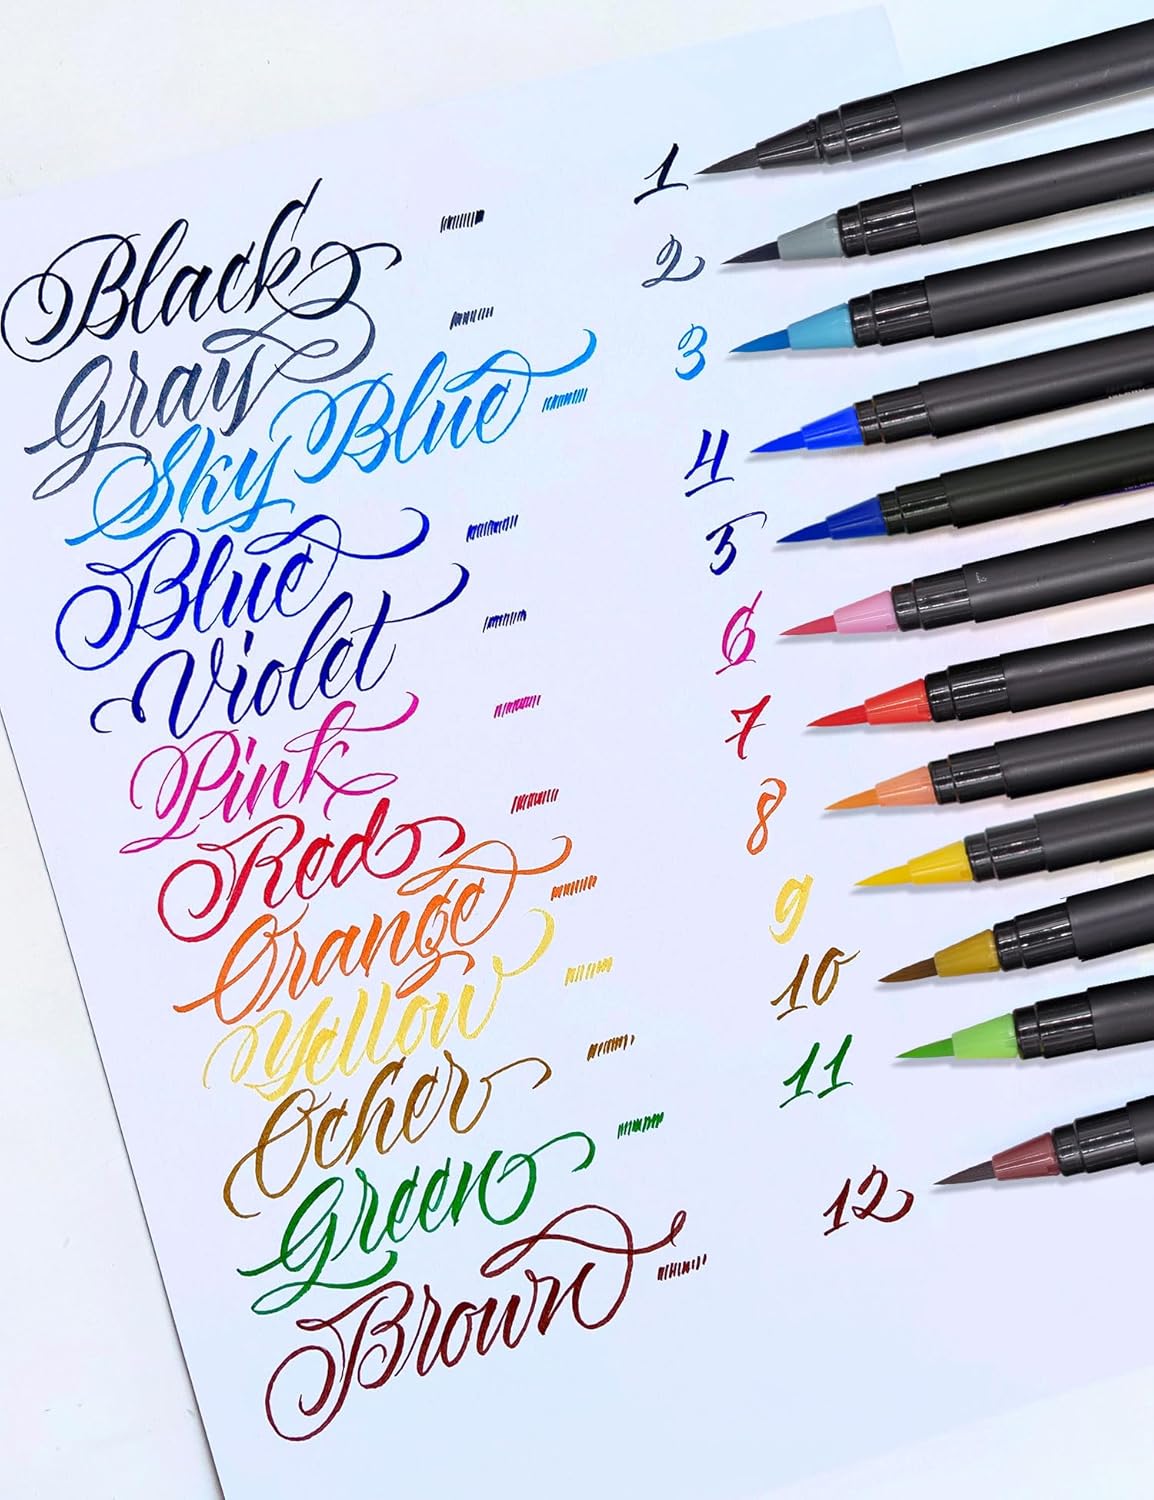 Black
Gray
Sky Blue
Blue
Violet
Pink
Red
Orange
Yellow
Ocher
Green
Brown
1
2
3
4
5
6
7
8
9
10
11
12